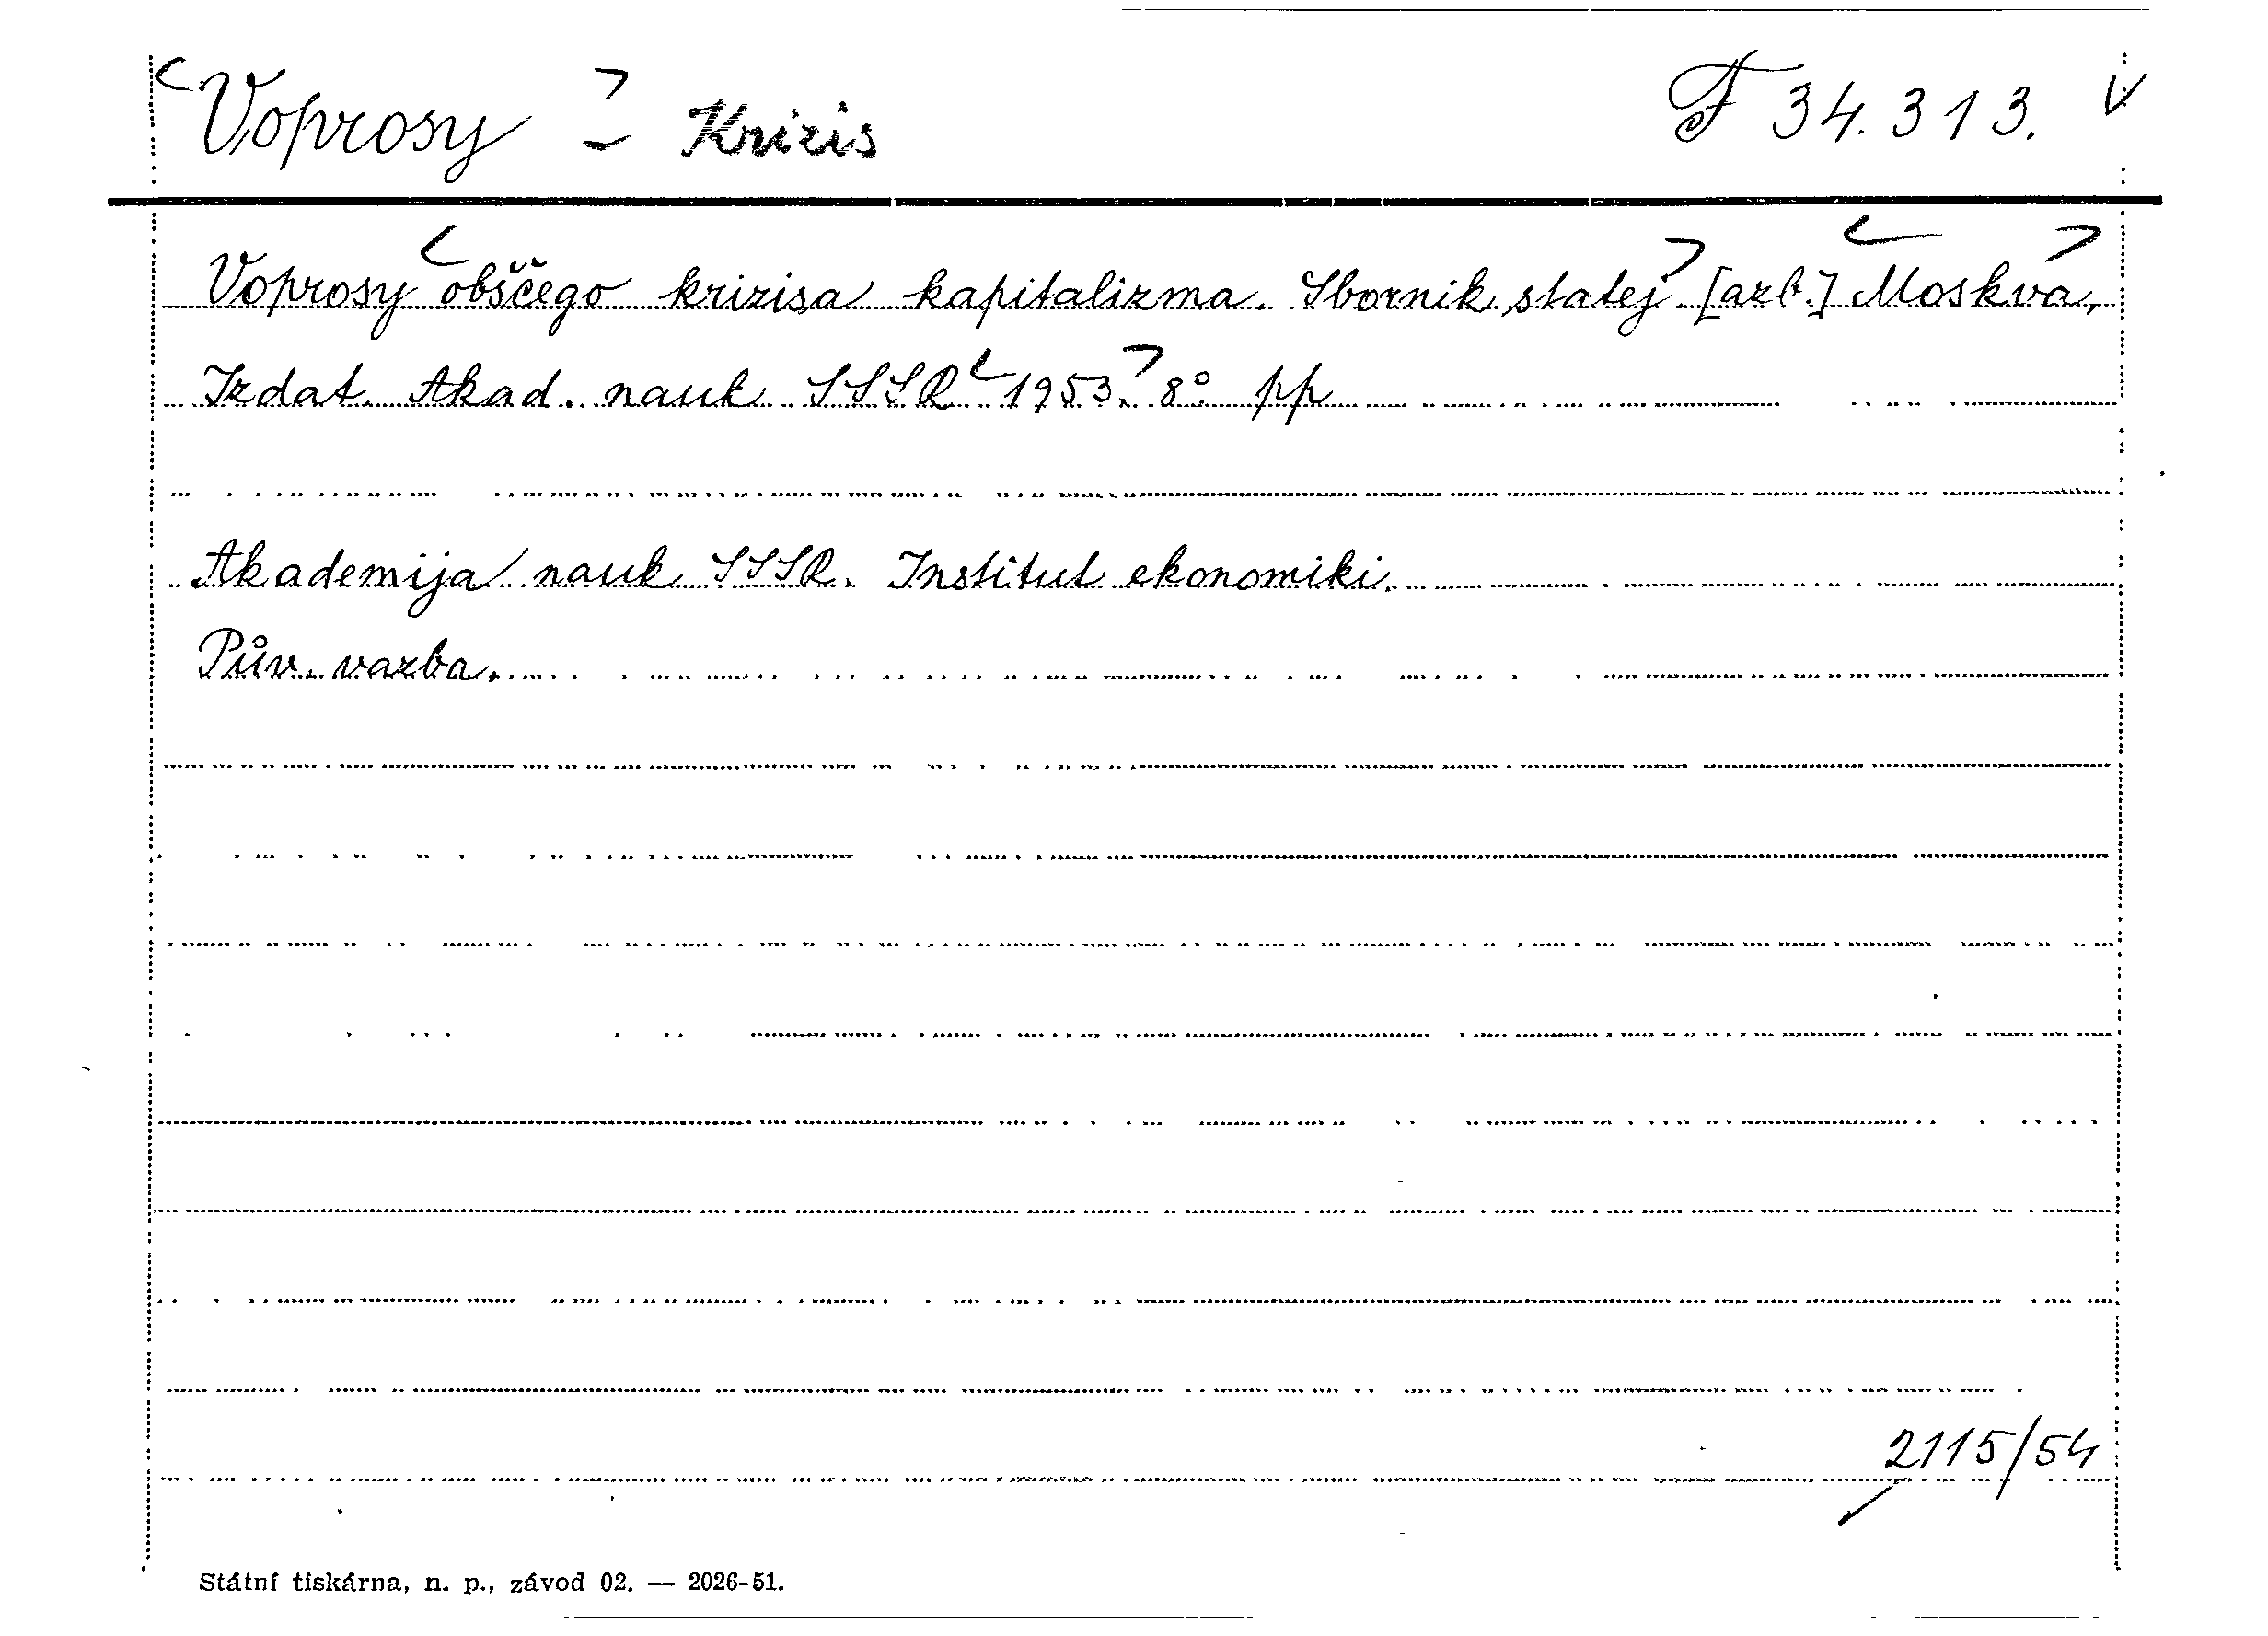 Voprosy - Krizis F 34.313.
Voprosy obščego krizisa kapitalizma. Sbornik statej. [azb.] Moskva,
Izdat. Akad. nauk SSSR 1953. 8° pp
Akademija nauk SSSR. Institut ekonomiki.
Pův. vazba.
2115/54
Státní tiskárna, n. p., závod 02. — 2026-51.